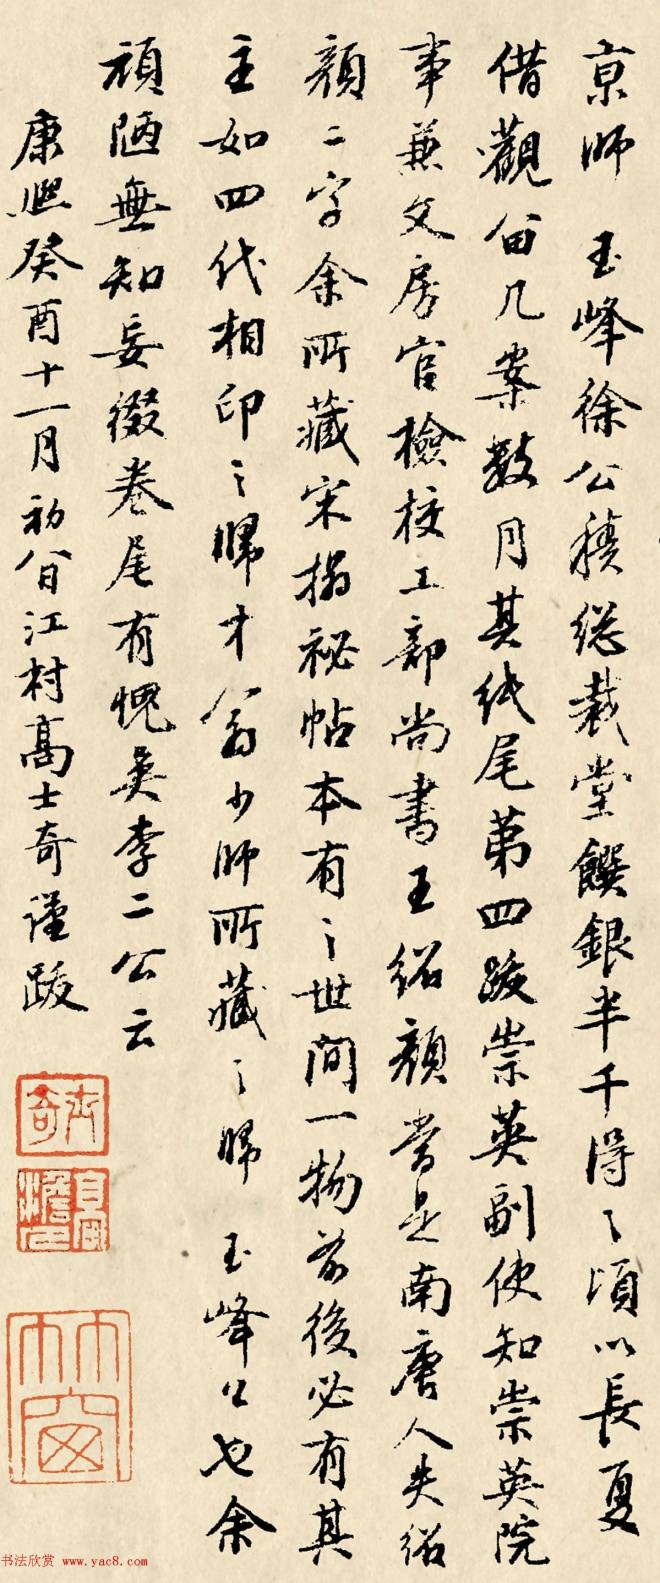 京師 玉峰徐公積總裁堂饌銀半千得〻頃以長夏
借觀留几案數月其紙尾第四跋崇英副使知崇英院
事兼文房官檢校工部尚書王紹顏當是南唐人失紹
顏二字余所藏宋搨祕帖本有〻世間一物前後必有其
主如四代相印〻歸才翁少師所藏〻歸 玉峰公也余
頑陋無知妄綴卷尾有愧吳李二公云
康熙癸酉十一月初八日江村高士奇謹跋
竹窗
书法欣赏 www.yac8.com